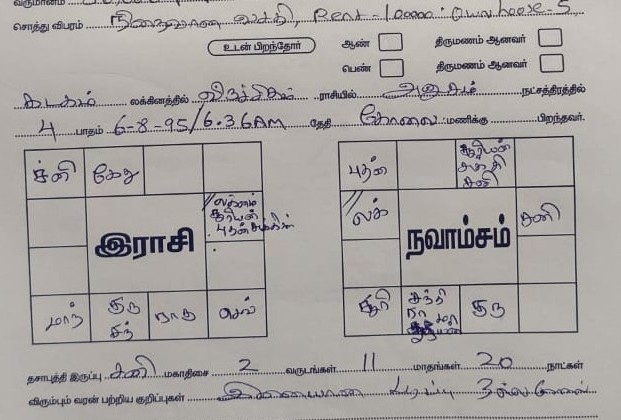 சொத்து விபரம் நிறைவான சுத்தி, Rent - 10000. Own house - 5
உடன் பிறந்தோர்
ஆண் திருமணம் ஆனவர்
பெண் திருமணம் ஆனவர்
கடகம் லக்கினத்தில் விருச்சிகம் ராசியில் அனுசம் நட்சத்திரத்தில்
4 பாதம் 6-8-95/6.36AM தேதி காலை மணிக்கு பிறந்தவர்.
சனி கேது
லக்னம்
சூரியன்
புதன் சுக்கிரன்
இராசி
மாந் குரு
சந் ராகு செவ்
புதன் சூரியன்
சனி
லக் சனி
நவாம்சம்
குரு
தசாபுத்தி இருப்பு சனி மகாதிசை 2 வருடங்கள் 11 மாதங்கள் 20 நாட்கள்
விரும்பும் வரன் பற்றிய குறிப்புகள் இணையான படிப்பு நல்ல வேலை